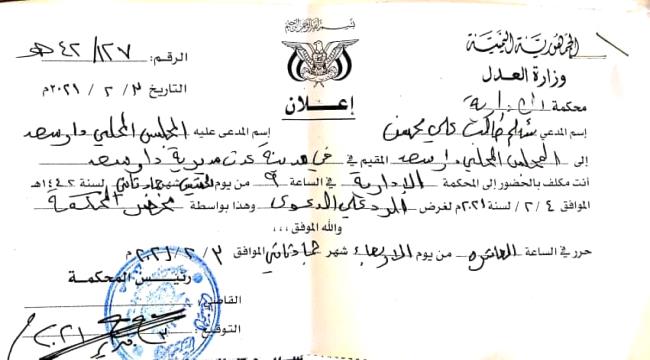 بسم الله الرحمن الرحيم
الجمهورية اليمنية
وزارة العدل
محكمة الإدارية
الرقم: ٤٢/١٢٧ هـ
التاريخ ٣ / ٢ / ٢٠٢١م
إعلان
إسم المدعي علي محسن إسم المدعى عليه المجلس المحلي دار سعد
إلى المجلس المحلي دار سعد المقيم في مدينة عدن مديرية دار سعد
أنت مكلف بالحضور إلى المحكمة الإدارية في الساعة ٩ من يوم الخميس شهر جماد ثاني لسنة ١٤٤٢هـ
الموافق ٤ / ٢ / لسنة ٢٠٢١م لغرض الرد على الدعوى وهذا بواسطة محضر المحكمة
والله الموفق ،،،
حرر في الساعة العاشرة من يوم الاربعاء شهر جماد ثاني الموافق ٣ / ٢ / ٢٠٢١م
رئيس المحكمة
القاضي:
التوقيع: